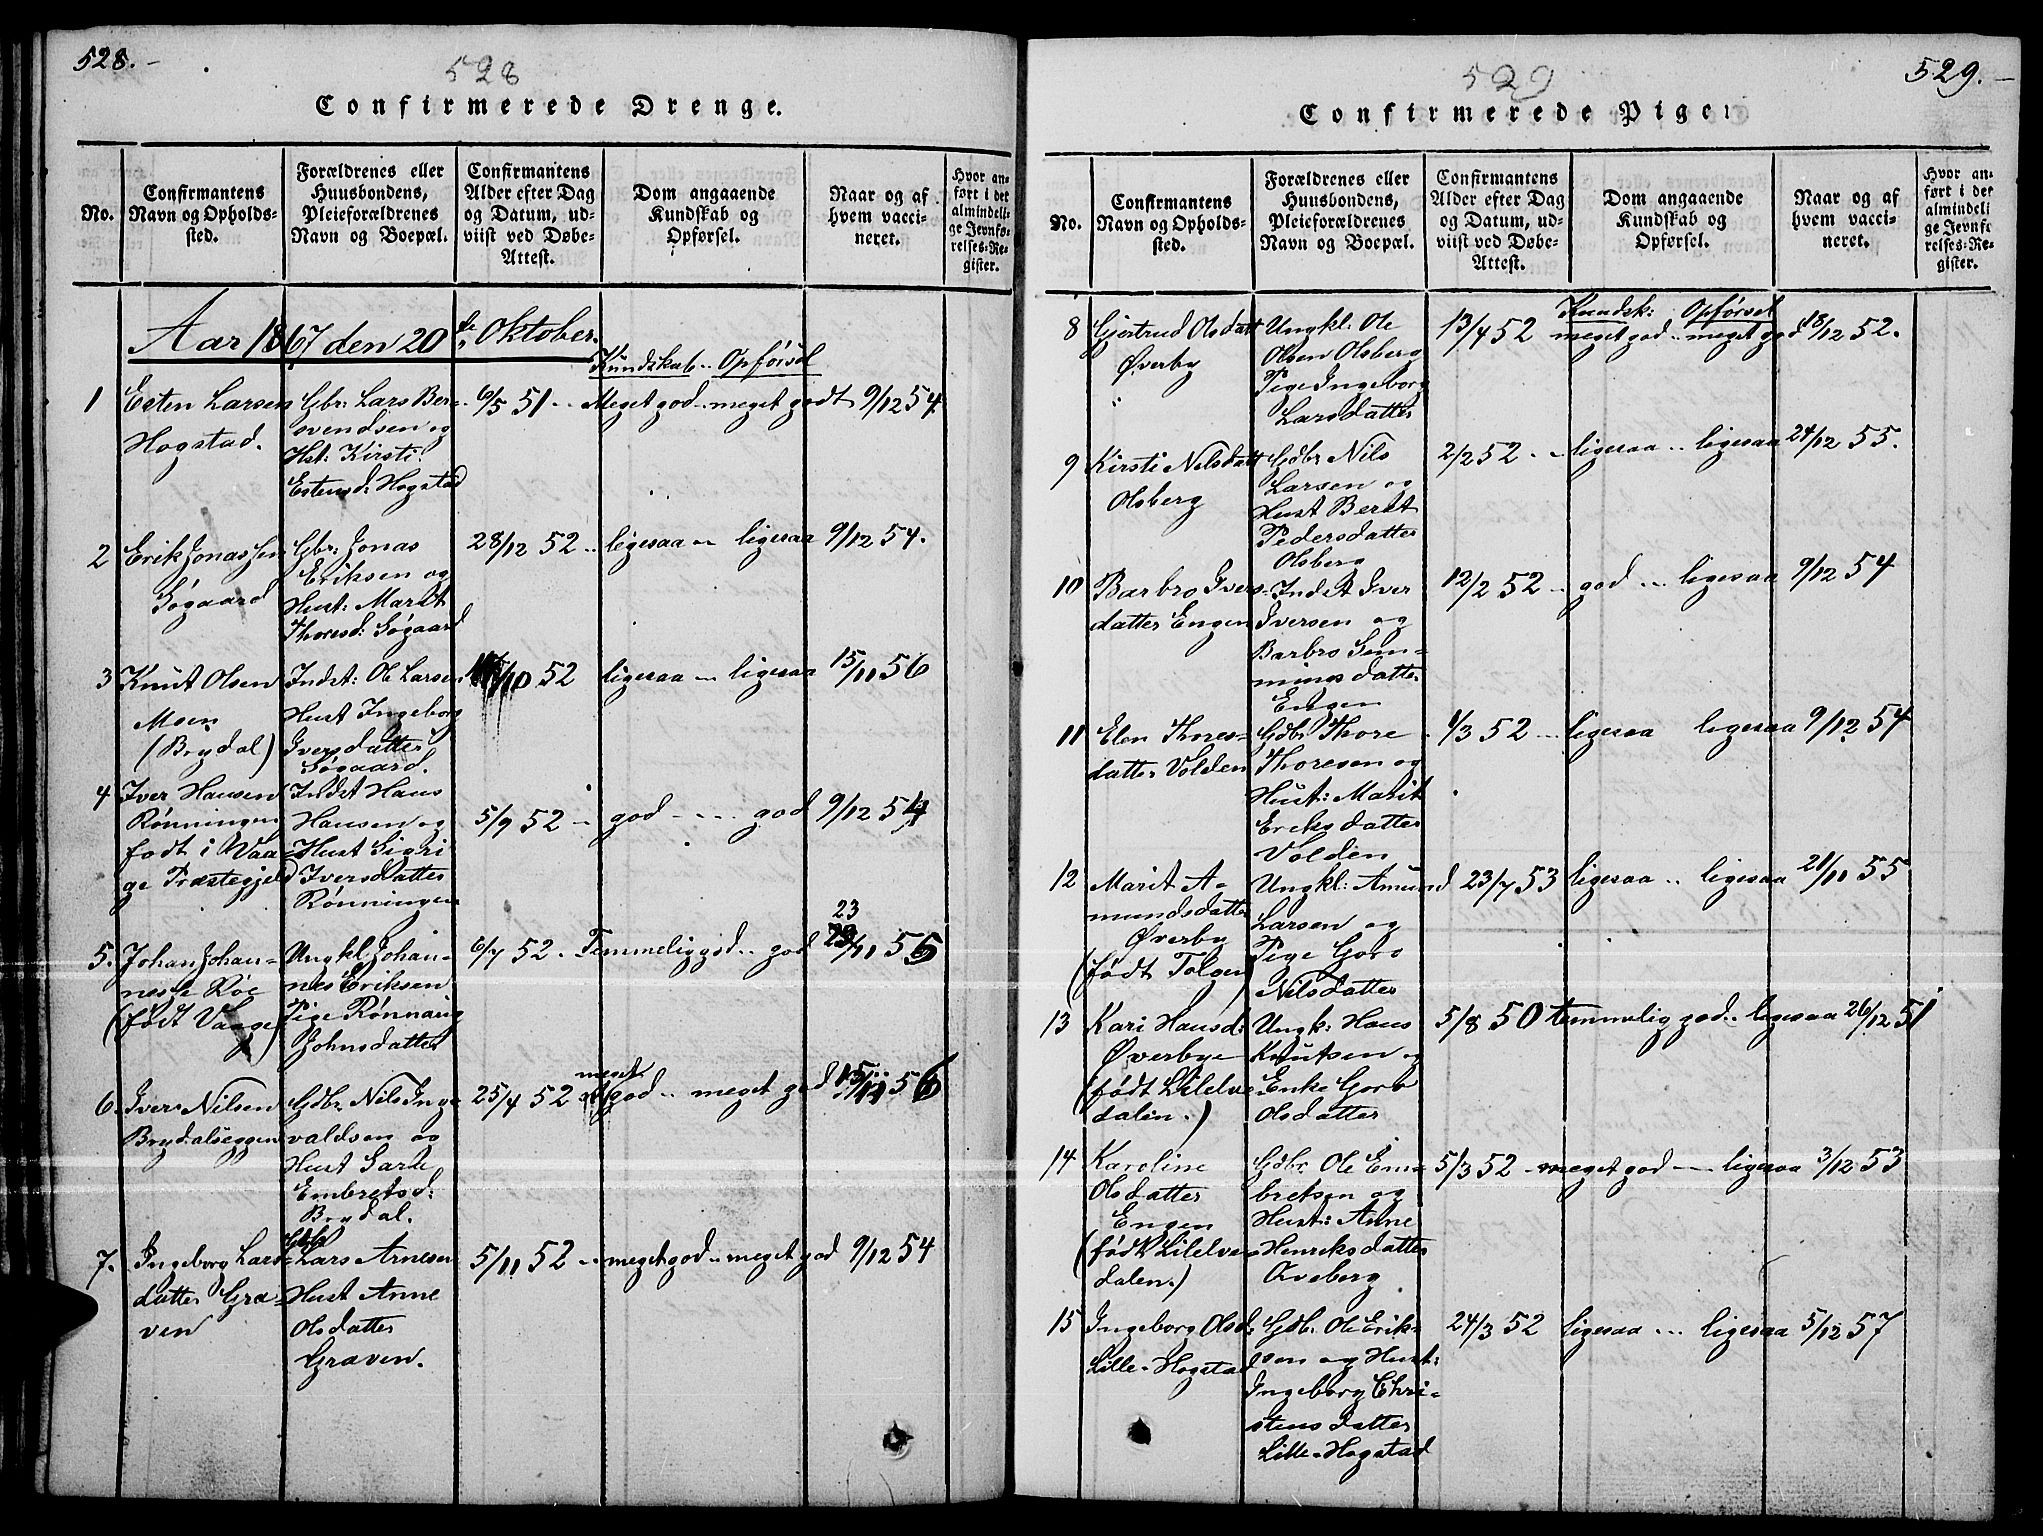 528.-
528
Confirmerede Drenge.
No.
Confirmantens
Navn og Opholds-
sted.
Forældrenes eller
Huusbondens,
Pleieforældrenes
Navn og Boepæl.
Confirmantens
Alder efter Dag
og Datum, ud-
viist ved Døbe-
Attest.
Dom angaaende
Kundskab og
Opførsel.
Naar og af
hvem vacci-
neret.
Hvor an-
ført i det
almindeli-
ge Jevnfø-
relses-Re-
gister.
Aar 1867 den 20de Oktober.
Kundskab .. Opførsel
1 Esten Larsen
Hogstad.
Gbr: Lars Ber-
svendsen og
Hst: Kirsti
Estensd: Hogstad
6/5 51 .. Meget god .. meget godt 9/12 54
2 Erik Jonassen
Søgaard
Gbr: Jonas
Eriksen og
Hust: Marit
Thoresd: Søgaard
28/12 52 .. ligesaa .. ligesaa 9/12 54.
3 Knut Olsen
Moen
(Brydal)
Indst: Ole Larsen
Hust Ingeborg
Iversdatter
Søgaard.
/10 52 ligesaa .. ligesaa 15/11 56
4 Iver Hansen
Rønningen
født i Vaa-
ge Præstegjeld
Indst Hans
Hansen og
Hust Sigri
Iversdatter
Rønningen
5/9 52 .. god .... god 9/12 54
5. Johan Johan-
nesse Røe
(født Vaage)
Ungkl. Johan-
nes Eriksen
Pige Rønnaug
Johnsdatter
6/7 52 . Temmelig god .. god 23/11 55
6. Iver Nilsen
Brydalseggen
Gdbr Nils Inge
valdsen og
Hust Sarh
Embretsd:
Brydal.
25/4 52 meget god .. meget god 15/11 56
7. Ingeborg Lars-
datter Gra-
ven
Gdb
Lars Arnesen
Hust Anne
Olsdatter
Graven.
5/11 52 .. meget god .. meget god 9/12 54
529.-
529
Confirmerede Piger
No.
Confirmantens
Navn og Opholds-
sted.
Forældrenes eller
Huusbondens,
Pleieforældrenes
Navn og Boepæl.
Confirmantens
Alder efter Dag
og Datum, ud-
viist ved Døbe-
Attest.
Dom angaaende
Kundskab og
Opførsel.
Naar og af
hvem vacci-
neret.
Hvor an-
ført i det
almindeli
ge Jevnfø
relses-Re-
gister.
Kundsk: Opførsel
8 Gjertrud Olsdatt
Øverby
Ungkl: Ole
Olsen Olsberg
Pige Ingeborg
Larsdatter
13/4 52 meget god .. meget god 18/12 52.
9 Kirsti Nilsdatt
Olsberg
Gdbr Nils
Larsen og
Hust Berit
Pedersdatter
Olsberg
2/2 52 .. ligesaa .. ligesaa 24/12 55.
10 Barbro Ivers-
datter Engen
Indst Iver
Iversen og
Barbro Sem-
mingsdatter
Engen
12/2 52 .. god ... ligesaa 9/12 54
11 Elen Thores-
datter Volden
Gdbr Thore
Thoresen og
Hust: Marit
Eriksdatter
Volden
4/3 52 .. ligesaa ligesaa 9/12 54
12 Marit A-
mundsdatter
Øverby
(født Tolgen)
Ungkl: Amund
Larsen og
Pige Goro
Nilsdatter
23/7 53 ligesaa .. ligesaa 21/11 55
13 Kari Hansd:
Øverbye
(født Lilelve
dalen.)
Ungk: Hans
Knutsen og
Enke Goro
Olsdatter
5/8 50 temmelig god .. ligesaa 26/12 51
14 Karoline
Olsdatter
Engen
(født Lilelve-
dalen.)
Gdbr Ole Em-
bretsen og
Hust: Anne
Henriksdatter
Qveberg
5/3 52 - meget god --- ligesaa 3/12 53
15 Ingeborg Olsd:
Lille-Hogstad
Gdb: Ole Erik-
sen og Hust:
Ingeborg Chri-
stensdatter
Lille-Hogstad
24/3 52 ligesaa ... ligesaa 5/12 57